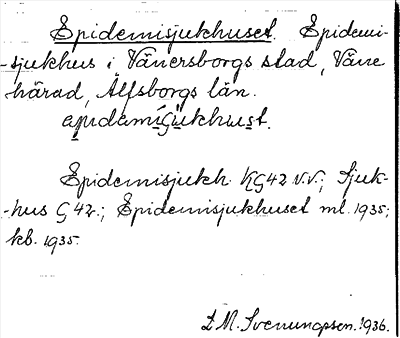 Epidemisjukhuset. Epidemi-
-sjukhus i Vänersborgs stad, Väne
härad, Älfsborgs län.
apidamíSükhust.
Epidemisjukh. KG42 v.v.; Sjuk-
-hus G 42v.; Epidemisjukhuset ml. 1935;
kb. 1935.
L M. Svenungsson. 1936.